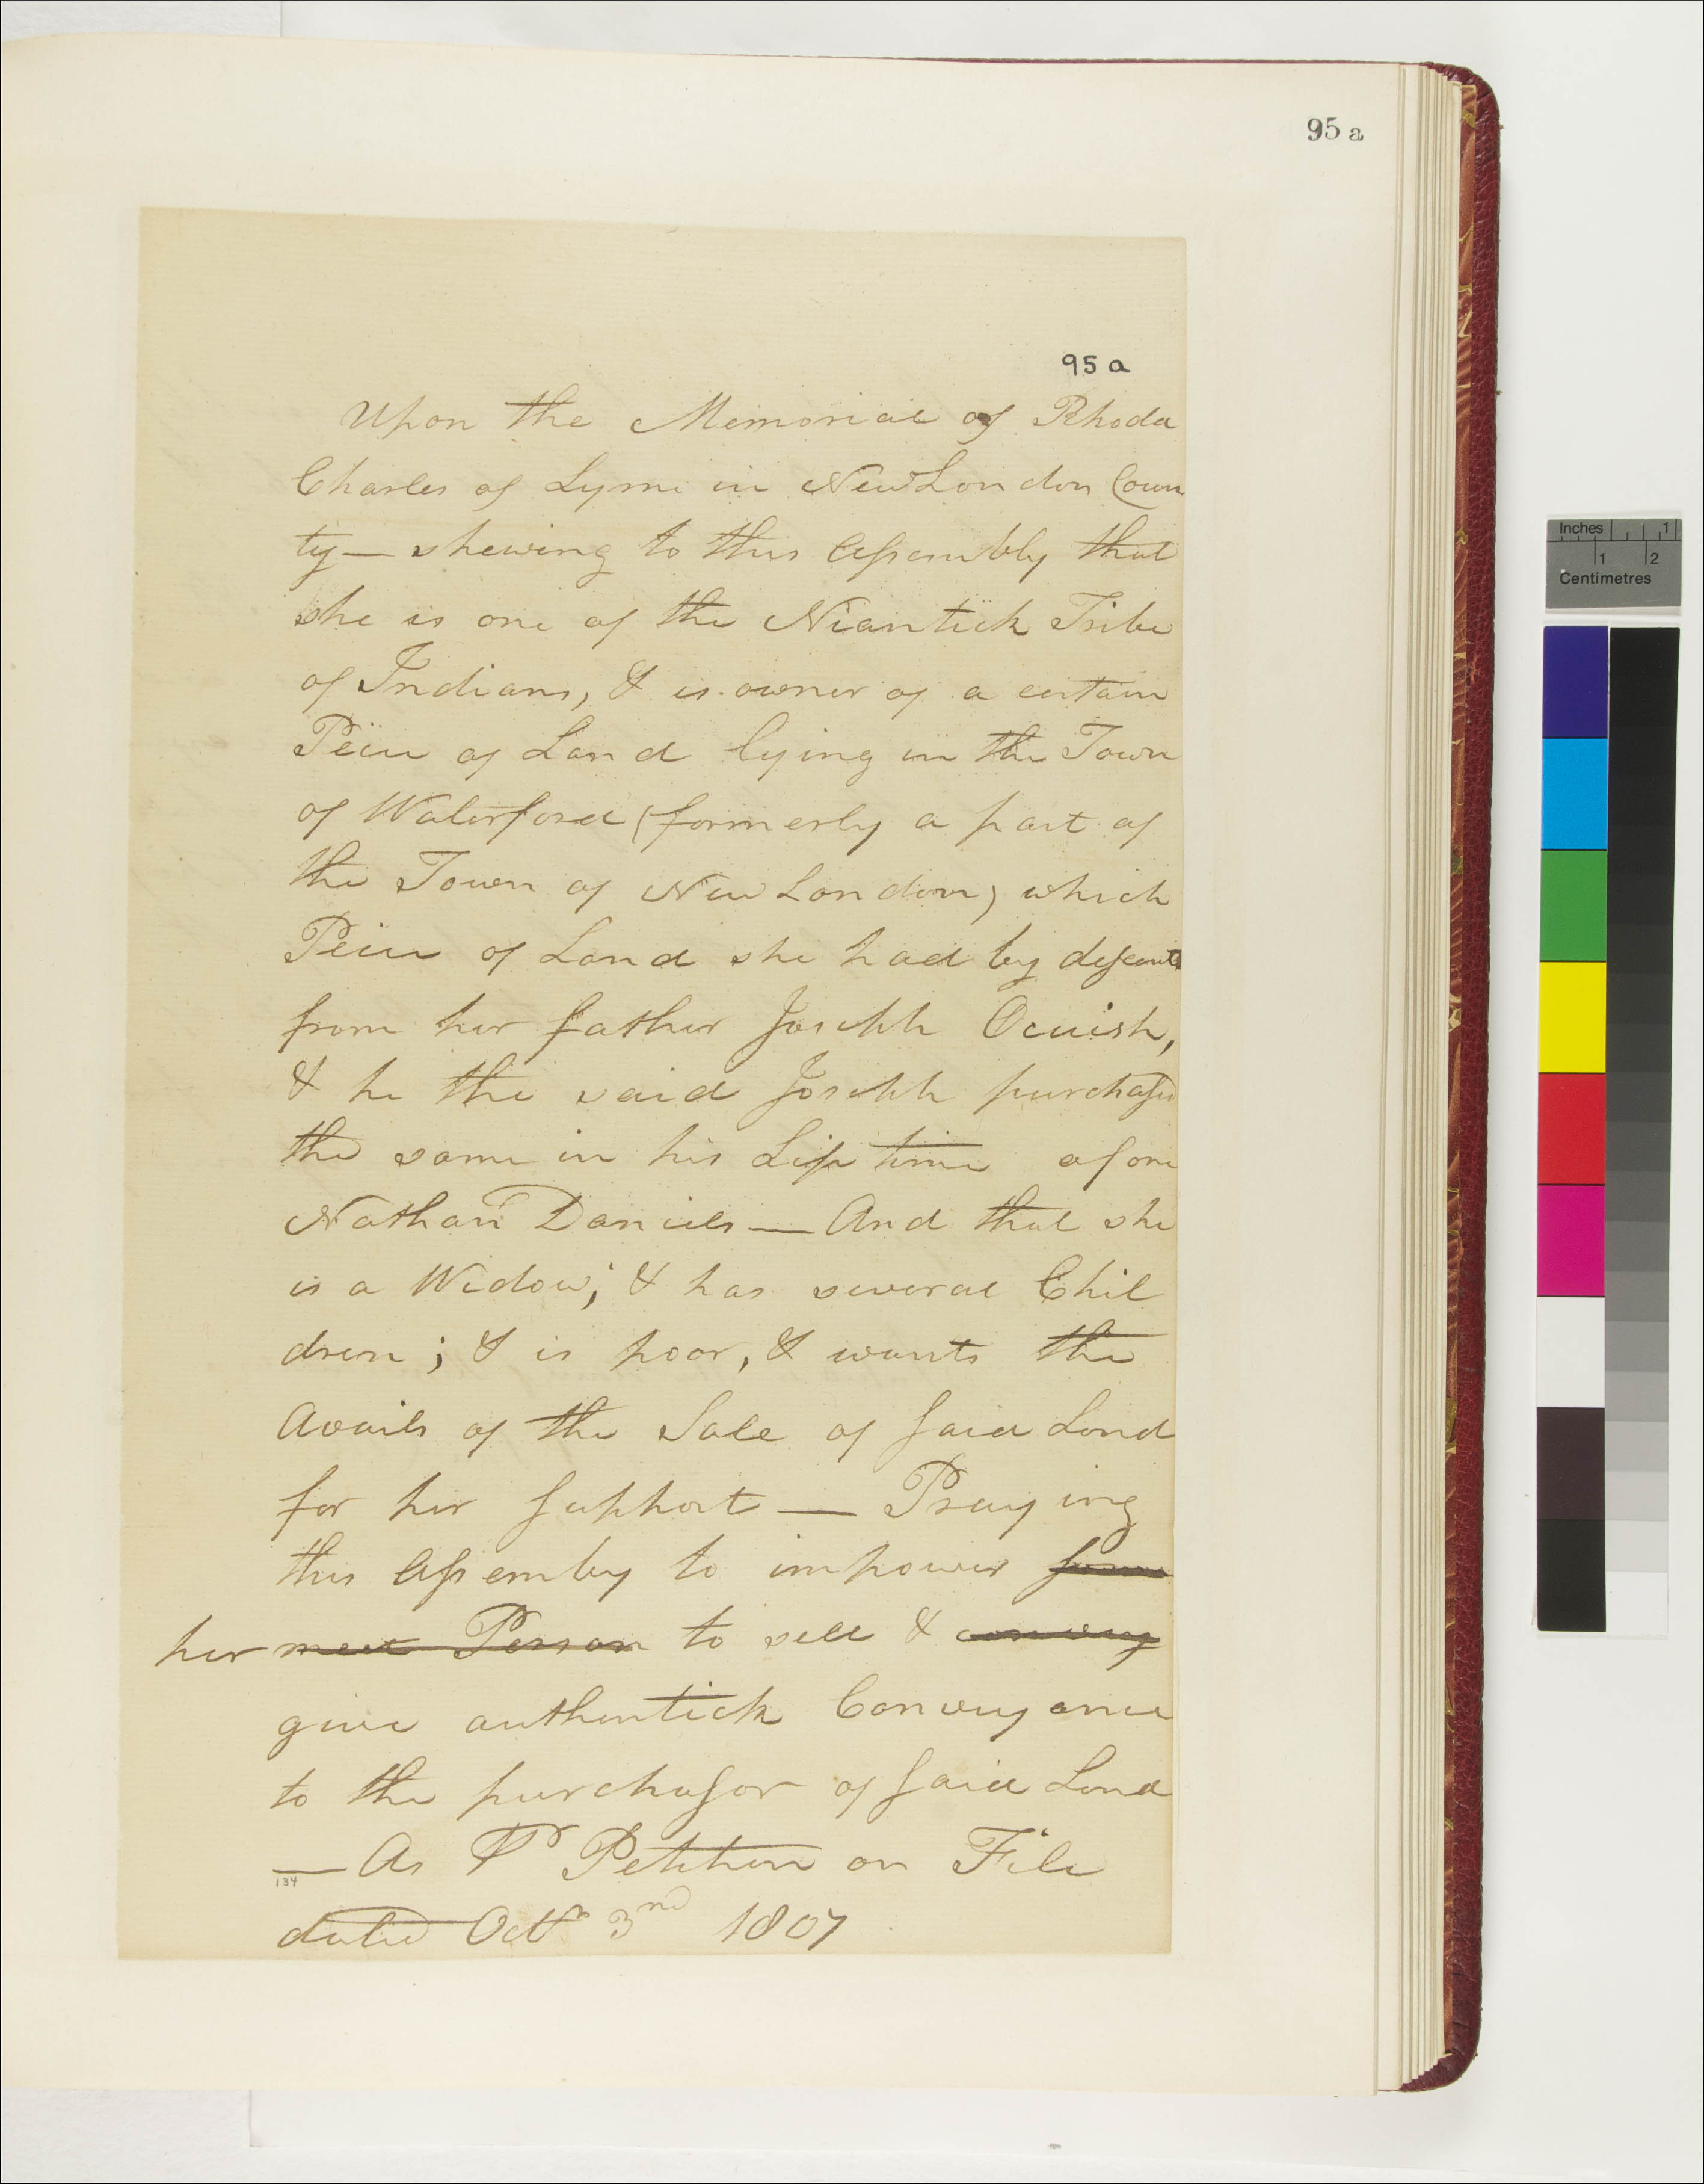 95 a
95 a
Upon the Memorial of Rhoda
Charles of Lyme in New London Coun
ty — shewing to this Assembly that
she is one of the Niantick Tribe
of Indians, & is owner of a certain
Peice of Land lying in the Town
of Waterford (formerly a part of
the Town of New London) which
Peice of Land she had by descent
from her father Joseph Ocuish,
& he the said Joseph purchased
the same in his Life time of one
Nathan Daniels — And that she
is a Widow; & has several Chil
dren; & is poor, & wants the
Avails of the Sale of said Land
for her support — Praying
this Assemby to impower some
her meet Person to sell & convey
give authentick Conveyance
to the purchasor of said Land
— As Pr Petition on File
134
dated Octr 3nd 1807
Inches 1
1 2
Centimetres